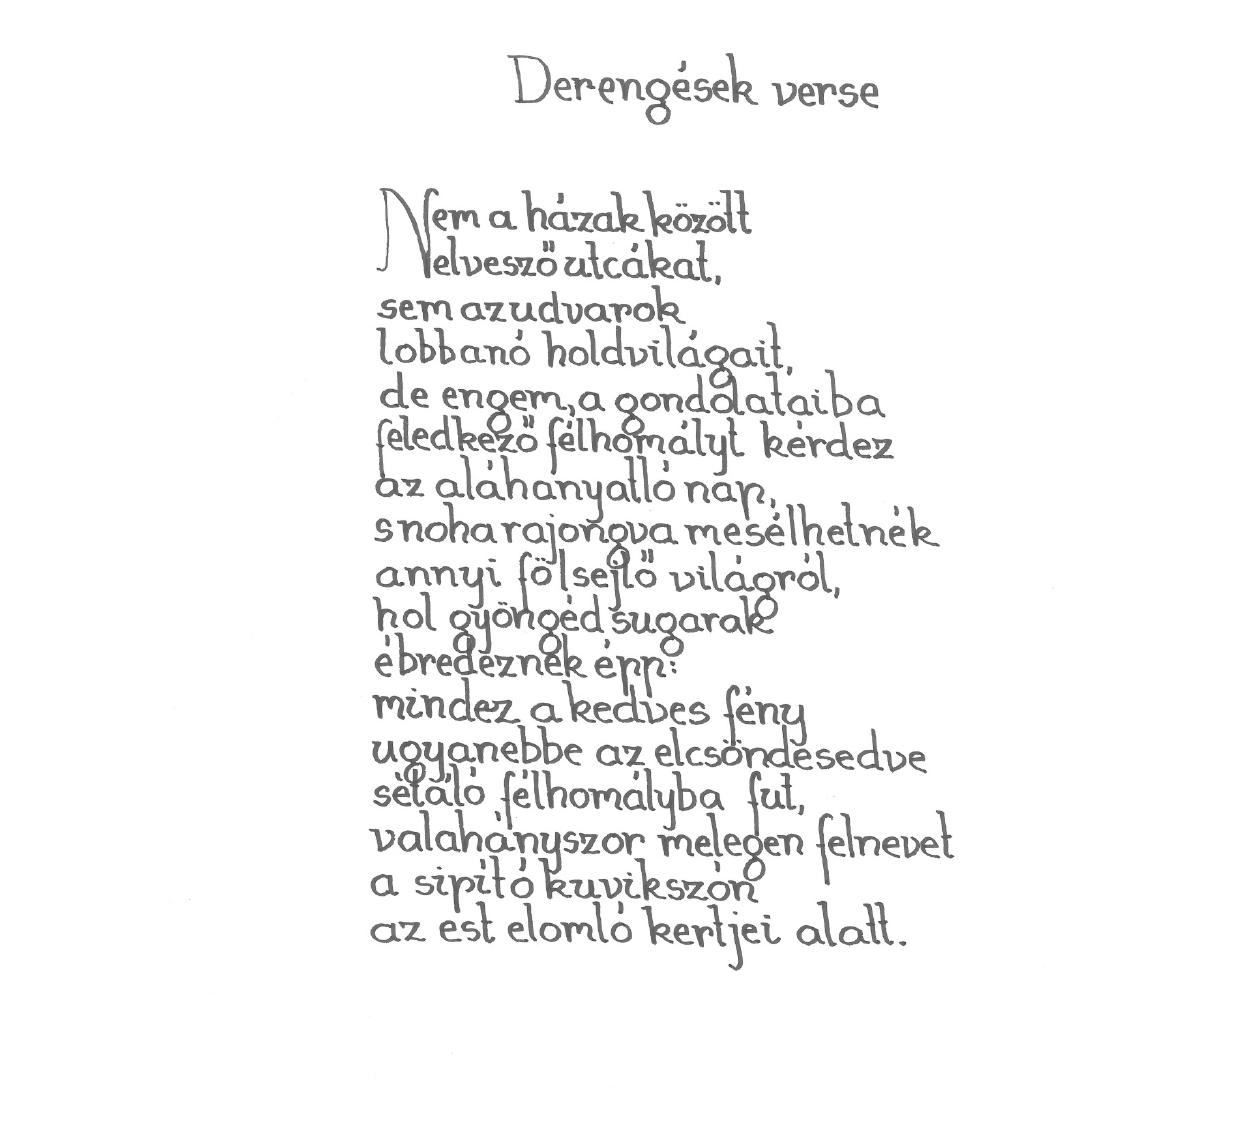 Derengések verse
Nem a házak között
elvesző utcákat,
sem az udvarok
lobbanó holdvilágait,
de engem, a gondolataiba
feledkező félhomályt kérdez
az aláhanyatló nap,
s noha rajongva mesélhetnék
annyi fölsejlő világról,
hol gyöngéd sugarak
ébredeznek épp:
mindez a kedves fény
ugyanebbe az elcsöndesedve
sétáló félhomályba fut,
valahányszor melegen felnevet
a sipító kuvikszón
az est elomló kertjei alatt.